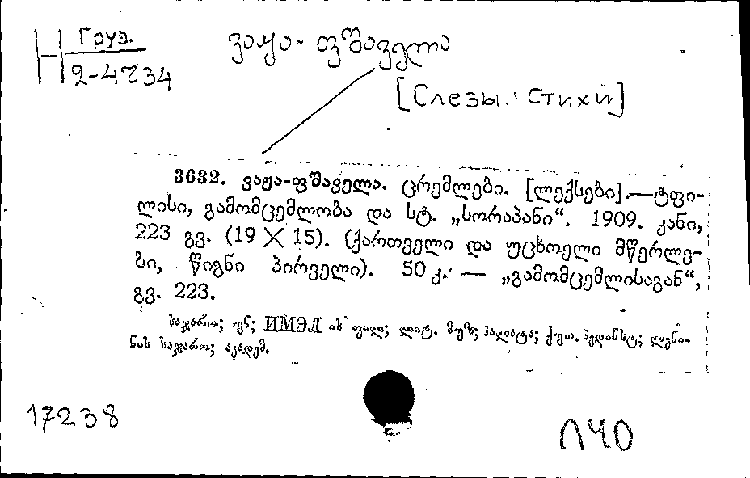 Н Груз.
2-4234
ვაჟა-ფშაველა
[Слезы. Стихи]
3632. ვაჟა-ფშაველა. ცრემლები. [ლექსები].—ტფი-
ლისი, გამომცემლობა და სტ. „სორაპანი“. 1909. კანი,
223 გვ. (19 X 15). (ქართველი და უცხოელი მწერლე-
ბი, წიგნი პირველი). 50 კ. — „გამომცემლისაგან“,
გვ. 223.
საჯარო; უნ; ИМЭЛ ის ფილ; ლიტ. მუზ;
ნის საჯარო; აკადემ.
17238
Л40